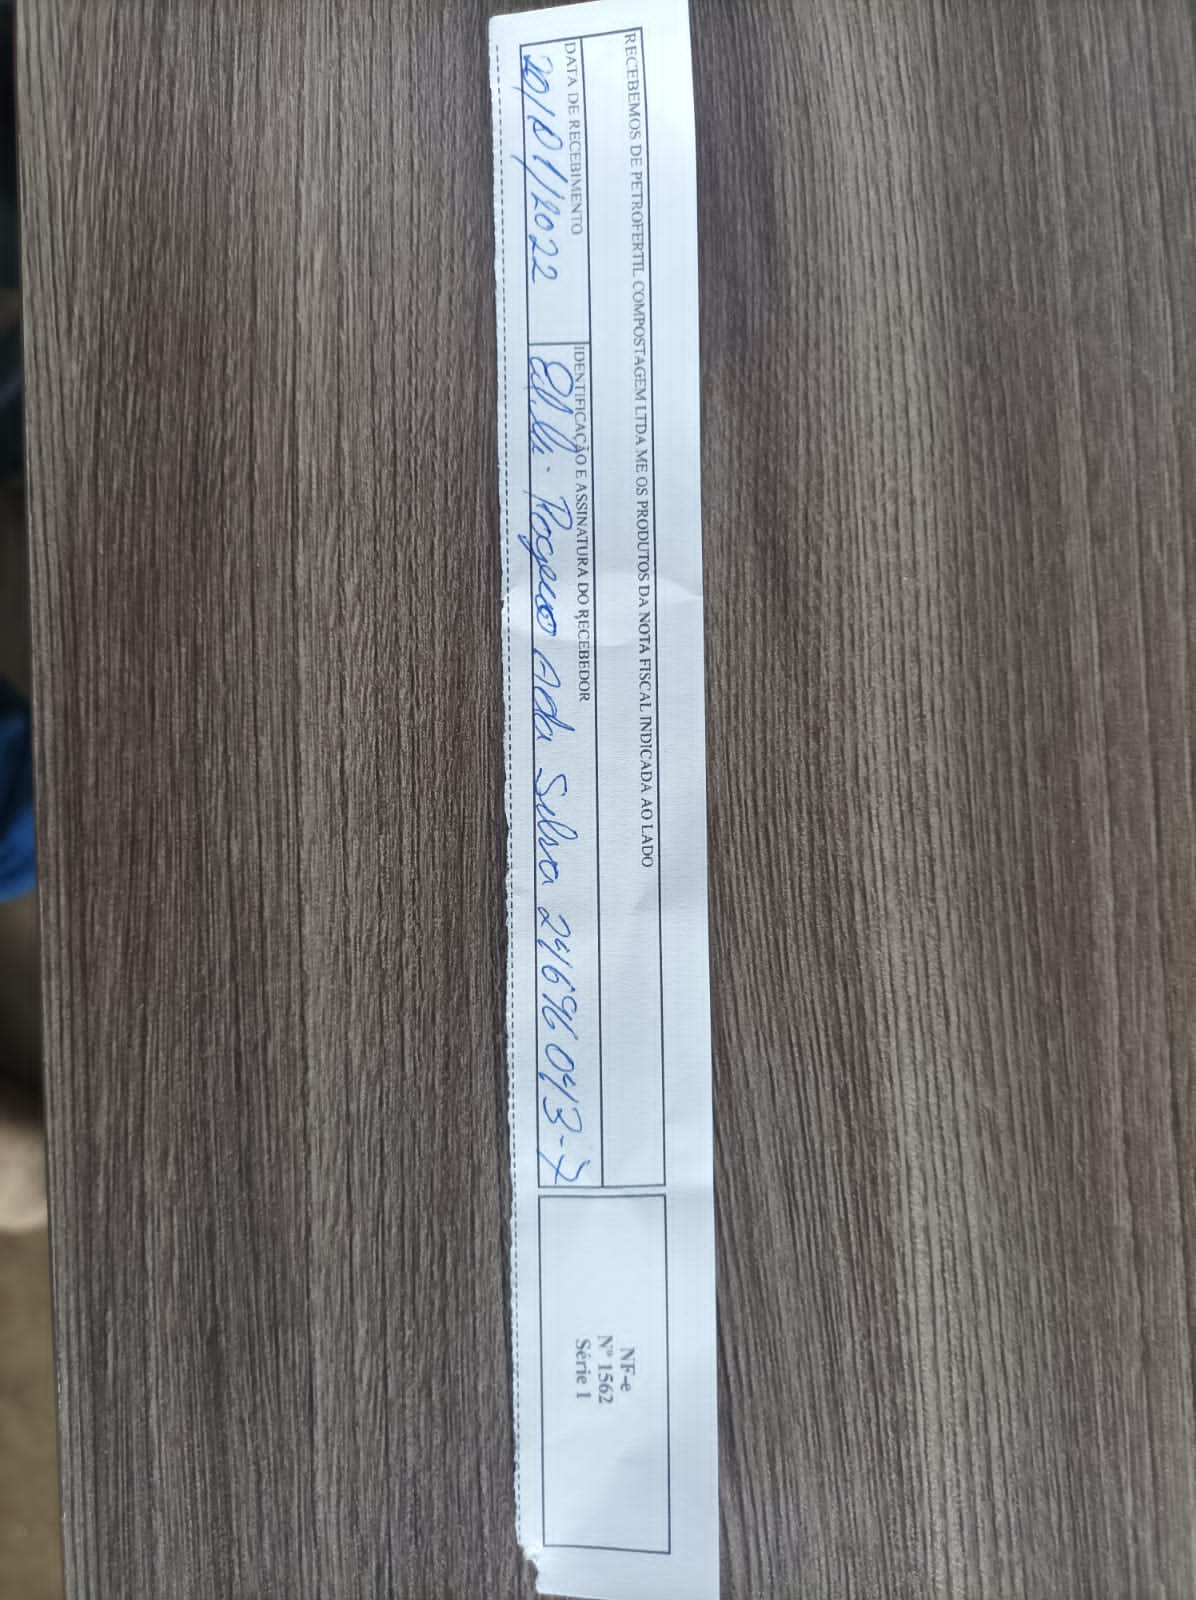 RECEBEMOS DE PETROFERTIL COMPOSTAGEM LTDA ME OS PRODUTOS DA NOTA FISCAL INDICADA AO LADO
DATA DE RECEBIMENTO
20/01/2022
IDENTIFICAÇÃO E ASSINATURA DO RECEBEDOR
Rogerio Ada Silva 24696043-7
NF-e
Nº 1562
Série 1